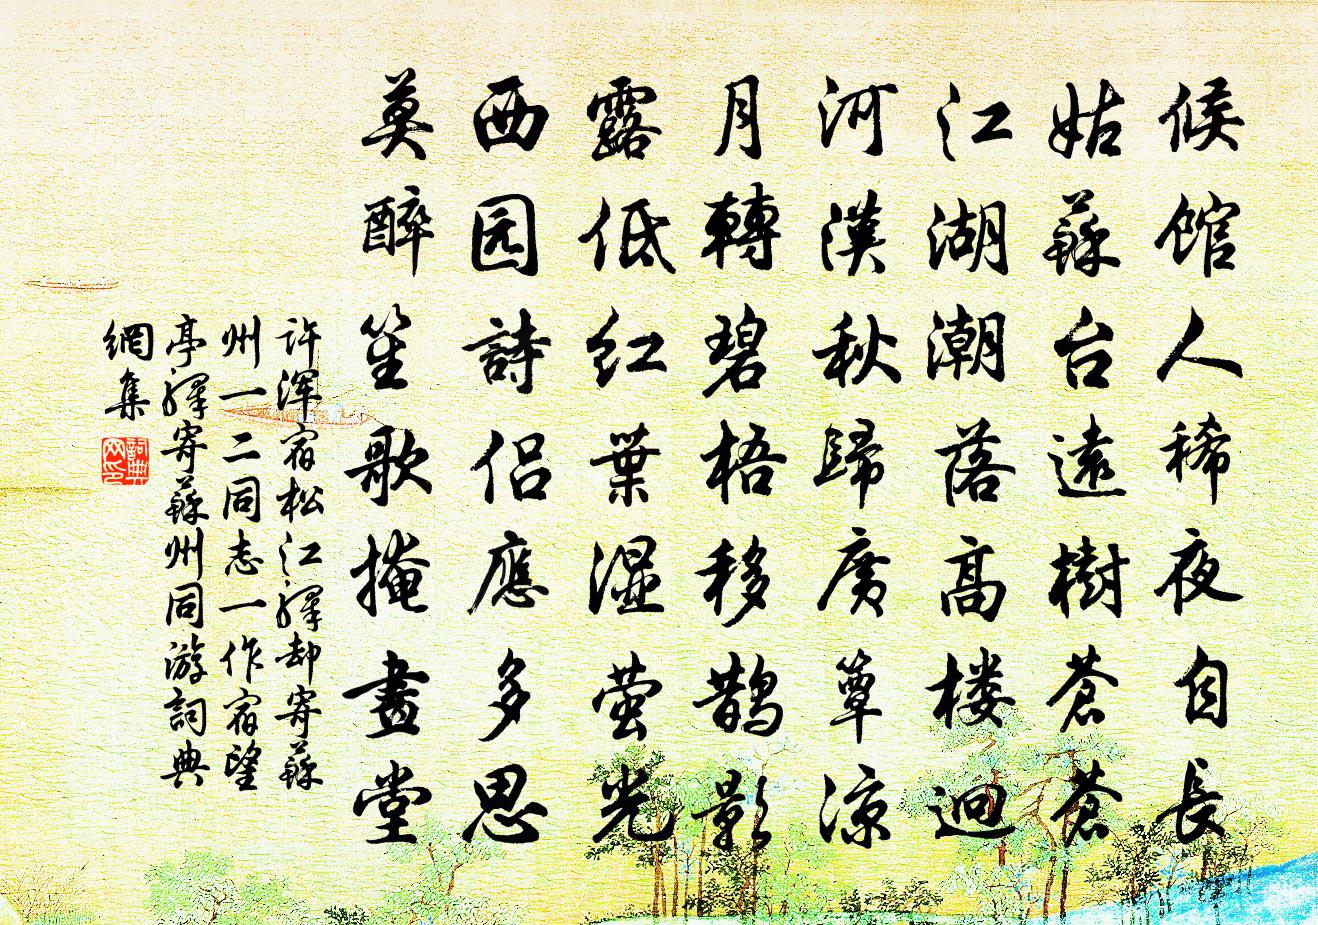 候館人稀夜自長
姑蘇台遠樹蒼蒼
江湖潮落高楼迥
河漢秋歸廣簟涼
月轉碧梧移鹊影
露低红葉湿萤光
西园詩侣應多思
莫醉笙歌掩畫堂
许浑宿松江驛却寄蘇
州一二同志一作宿望
亭驛寄蘇州同游詞典
網集
詞典
网印